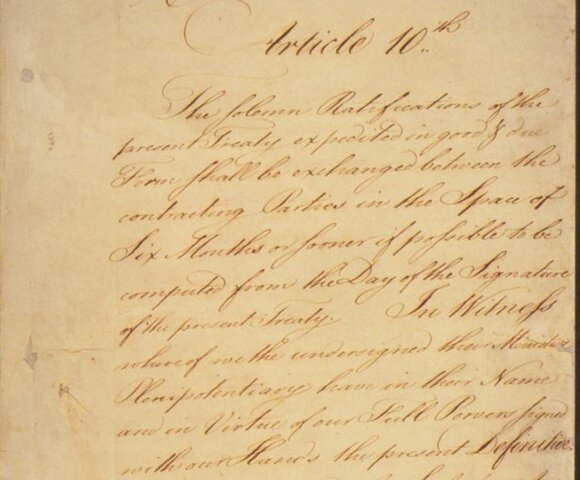 Article 10.th
The solemn Ratifications of the
present Treaty expedited in good & due
Form shall be exchanged between the
contracting Parties in the Space of
Six Months or sooner if possible to be
computed from the Day of the Signature
of the present Treaty. In Witness
whereof we the undersigned their Ministers
Plenipotentiary have in their Name
and in Virtue of our Full Powers signed
with our Hands the present Definitive